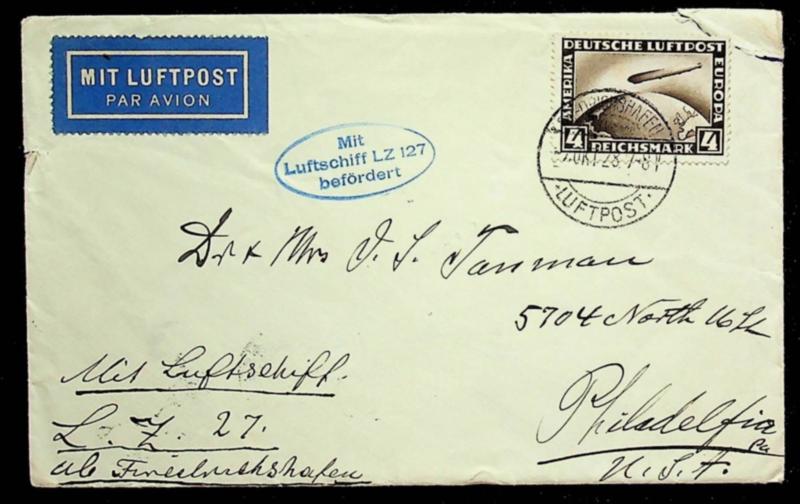 MIT LUFTPOST
PAR AVION
DEUTSCHE LUFTPOST
AMERIKA
EUROPA
4 REICHSMARK 4
Mit
Luftschiff LZ 127
befördert
FRIEDRICHSHAFEN
OKT 28 7-8V
LUFTPOST
Dr & Mrs J. S. Tanman
5704 North
Philadelfia
Pa
U.S.A.
Mit Luftschiff.
L. Z. 27.
ab Friedrichshafen